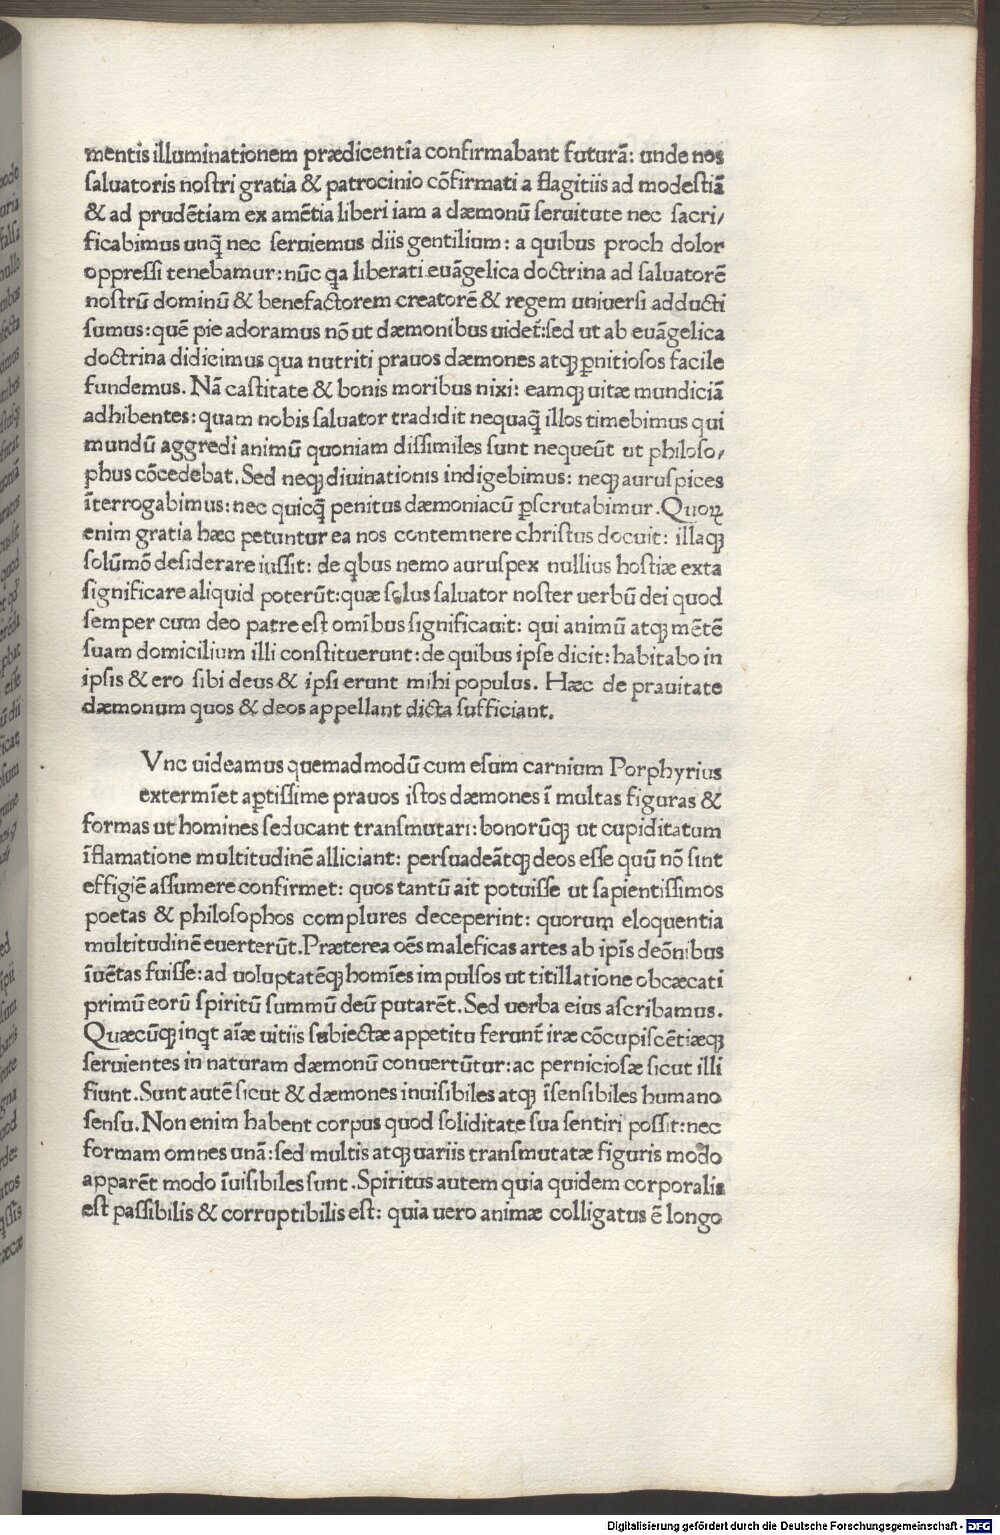 mentis illuminationem prædicentia confirmabant futurā: unde nos
saluatoris nostri gratia & patrocinio cōfirmati a flagitiis ad modestiā
& ad prudētiam ex amētia liberi iam a dæmonū seruitute nec sacri/
ficabimus unꝗ̄ nec seruiemus diis gentilium: a quibus proch dolor
oppressi tenebamur: nūc ꝗa liberati euāgelica doctrina ad saluatorē
nostrū dominū & benefactorem creatorē & regem uniuersi adducti
sumus: quē pie adoramus nō ut dæmonibus uidet̄: sed ut ab euāgelica
doctrina didicimus qua nutriti prauos dæmones atqꝫ ꝑnitiosos facile
fundemus. Nā castitate & bonis moribus nixi: eamqꝫ uitæ mundiciā
adhibentes: quam nobis saluator tradidit nequaꝗ̄ illos timebimus qui
mundū aggredi animū quoniam dissimiles sunt nequeūt ut philoso/
phus cōcedebat. Sed neqꝫ diuinationis indigebimus: neqꝫ auruspices
īterrogabimus: nec quicꝗ̄ penitus dæmoniacū ꝑscrutabimur. Quoꝝ
enim gratia hæc petuntur ea nos contemnere christus docuit: illaqꝫ
solūmō desiderare iussit: de ꝗbus nemo auruspex nullius hostiæ exta
significare aliquid poterūt: quæ solus saluator noster uerbū dei quod
semper cum deo patre est omībus significauit: qui animū atqꝫ mētē
suam domicilium illi constituerunt: de quibus ipse dicit: habitabo in
ipsis & ero sibi deus & ipsi erunt mihi populus. Hæc de prauitate
dæmonum quos & deos appellant dicta sufficiant.
Vnc uideamus quemadmodū cum esum carnium Porphyrius
extermīet aꝑtissime prauos istos dæmones ī multas figuras &
formas ut homines seducant transmutari: bonorūqꝫ ut cupiditatum
īflamatione multitudinē alliciant: persuadeātqꝫ deos esse quū nō sint
effigiē assumere confirmet: quos tantū ait potuisse ut sapientissimos
poetas & philosophos complures deceperint: quorum eloquentia
multitudinē euerterūt. Præterea oēs maleficas artes ab ipīs deōnibus
īuētas fuisse: ad uoluptatēqꝫ homīes impulsos ut titillatione obcæcati
primū eorū spiritū summū deū putarēt. Sed uerba eius ascribamus.
Quæcūqꝫ inꝗt aīæ uitiis subiectæ appetitu ferunt̄ iræ cōcupiscētiæqꝫ
seruientes in naturam dæmonū conuertūtur: ac perniciosæ sicut illi
fiunt. Sunt autē sicut & dæmones inuisibiles atqꝫ īsensibiles humano
sensu. Non enim habent corpus quod soliditate sua sentiri possit: nec
formam omnes unā: sed multis atqꝫ uariis transmutatæ figuris modo
apparēt modo īuisibiles sunt. Spiritus autem quia quidem corporalis
est passibilis & corruptibilis est: quia uero animæ colligatus ē longo
Digitalisierung gefördert durch die Deutsche Forschungsgemeinschaft - DFG